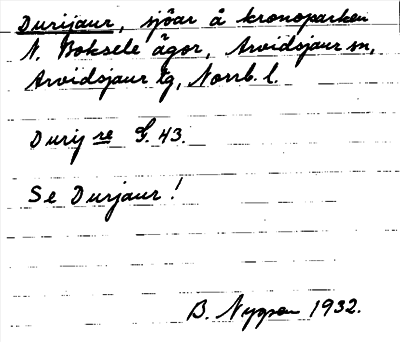 Durijaur, sjöar å kronoparken
N. Boksele ägor, Arvidsjaur sn,
Arvidsjaur tg, Norrb. l.
Durij re G. 43.
Se Durjaur!
B. Nyman 1932.